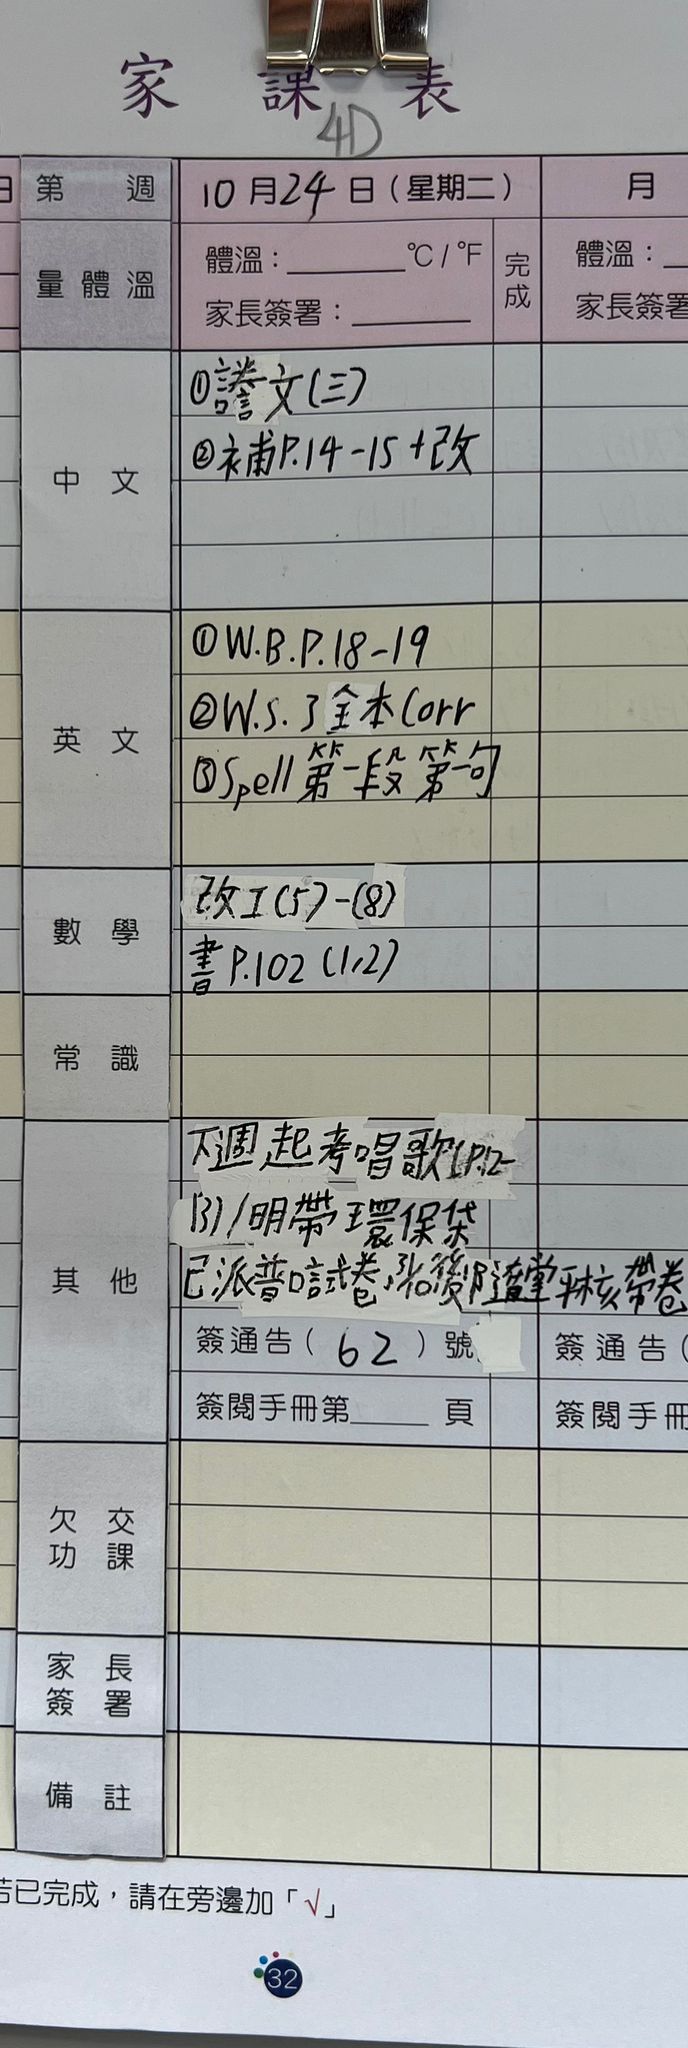 家課表
4D
日 第 週 10月24日(星期二) 月
量體溫 體溫:______°C/°F 完成 體溫:
家長簽署:______ 家長簽署
中文 ①謄文(三)
②補P.14-15+改
英文 ①W.B.P.18-19
②W.S.3全本Corr
③Spell第一段第一句
數學 改I(5)-(8)
書P.102(1,2)
常識
其他 下週起考唱歌(P.12-
13)/明帶環保袋
已派普口試卷,
簽通告(62)號 簽通告(
簽閱手冊第____頁 簽閱手冊
欠交功課
家長簽署
備註
若已完成,請在旁邊加「√」
32